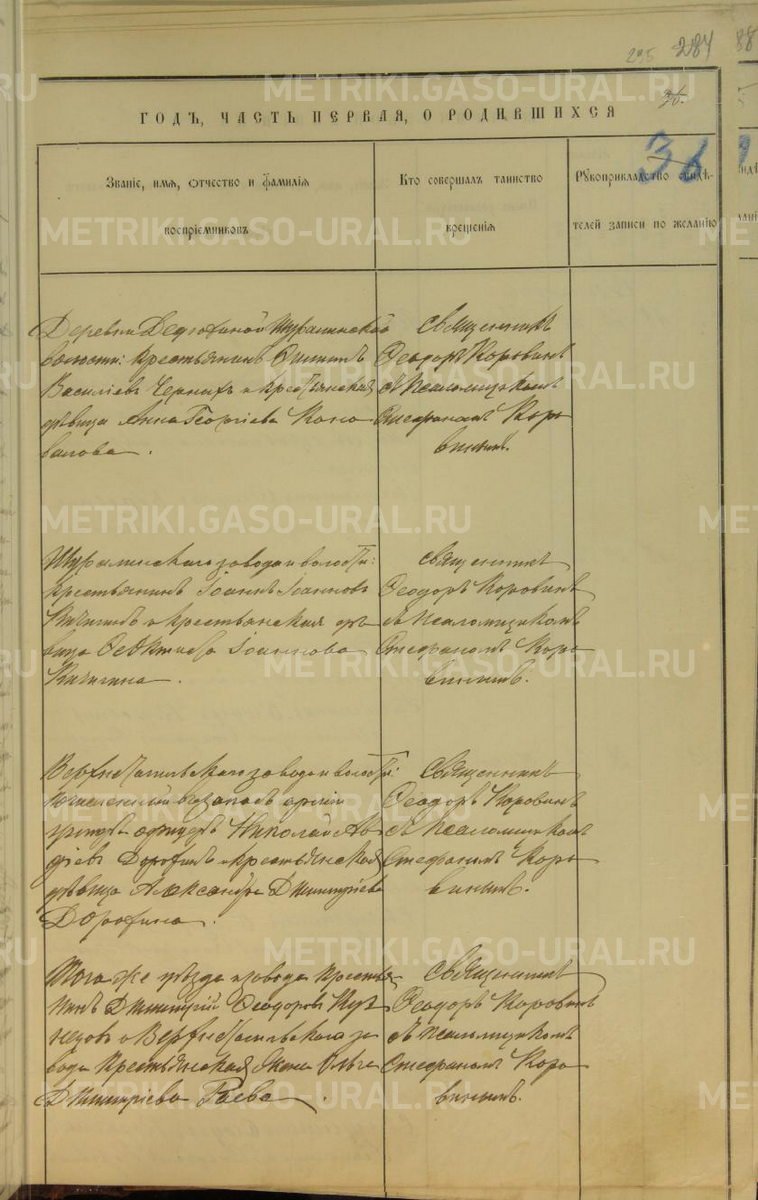 235 284
36.
ГОДЪ, ЧАСТЬ ПЕРВАЯ, О РОДИВШИХСЯ
36
Званіе, имя, отчество и фамилія
воспріемниковъ
Кто совершалъ таинство
крещенія
Рукоприкладство свидѣ-
телей записи по желанію
Деревни Шуралинской
волости: крестьянинъ
Василіевъ Черныхъ и крестьянская
дѣвица Анна Георгіева Коно
валова.
Священникъ
Ѳеодоръ Коровинъ
съ Псаломщикомъ
Стефаномъ Коро
винымъ.
Шуралинскаго завода и волости:
крестьянинъ Іоаннъ Іоанновъ
Кичигинъ и крестьянская дѣ
вица Ѳеоктиста Іоаннова
Кичигина.
Священникъ
Ѳеодоръ Коровинъ
съ Псаломщикомъ
Стефаномъ Коро
винымъ.
Верхнетагильскаго завода и волости:
въ запасъ арміи
унтеръ офицеръ Николай Ав
діевъ Дорофинъ и крестьянская
дѣвица Александра Димитріева
Дорофина.
Священникъ
Ѳеодоръ Коровинъ
съ Псаломщикомъ
Стефаномъ Коро
винымъ.
Того же уѣзда и завода крестья
нинъ Димитрій Ѳеодоровъ Куз
нецовъ и Верхнетагильскаго за
вода крестьянская жена Ольга
Димитріева Гаева.
Священникъ
Ѳеодоръ Коровинъ
съ Псаломщикомъ
Стефаномъ Коро
винымъ.
METRIKI.GASO-URAL.RU